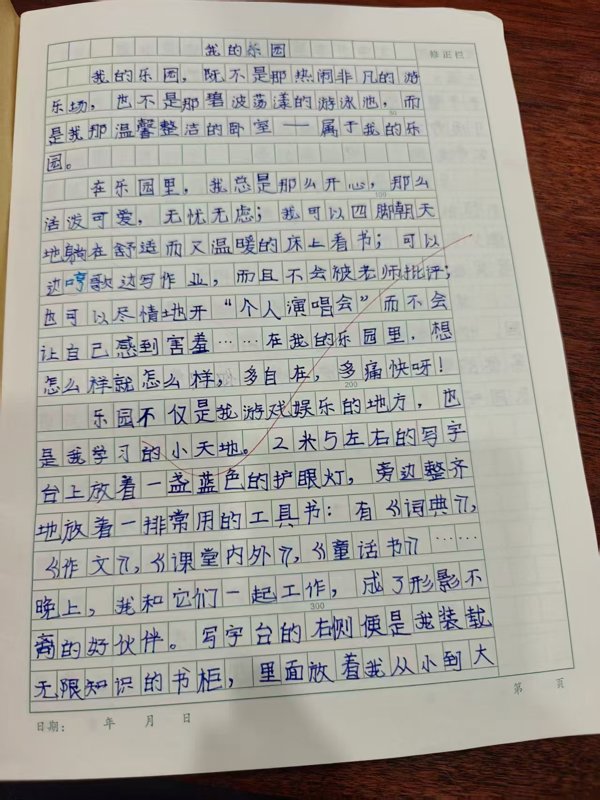 我的乐园
修正栏
我的乐园，既不是那热闹非凡的游
乐场，也不是那碧波荡漾的游泳池，而
是我那温馨整洁的卧室——属于我的乐
园。
在乐园里，我总是那么开心，那么
活泼可爱，无忧无虑；我可以四脚朝天
地躺在舒适而又温暖的床上看书；可以
边哼歌边写作业，而且不会被老师批评；
也可以尽情地开“个人演唱会”而不会
让自己感到害羞……在我的乐园里，想
怎么样就怎么样，多自在，多痛快呀！
200
乐园不仅是我游戏娱乐的地方，也
是我学习的小天地。2米5左右的写字
台上放着一盏蓝色的护眼灯，旁边整齐
地放着一排常用的工具书：有《词典》，
《作文》，《课堂内外》，《童话书》……
晚上，我和它们一起工作，成了形影不
300
离的好伙伴。写字台的右侧便是我装载
无限知识的书柜，里面放着我从小到大
第 页
日期： 年 月 日